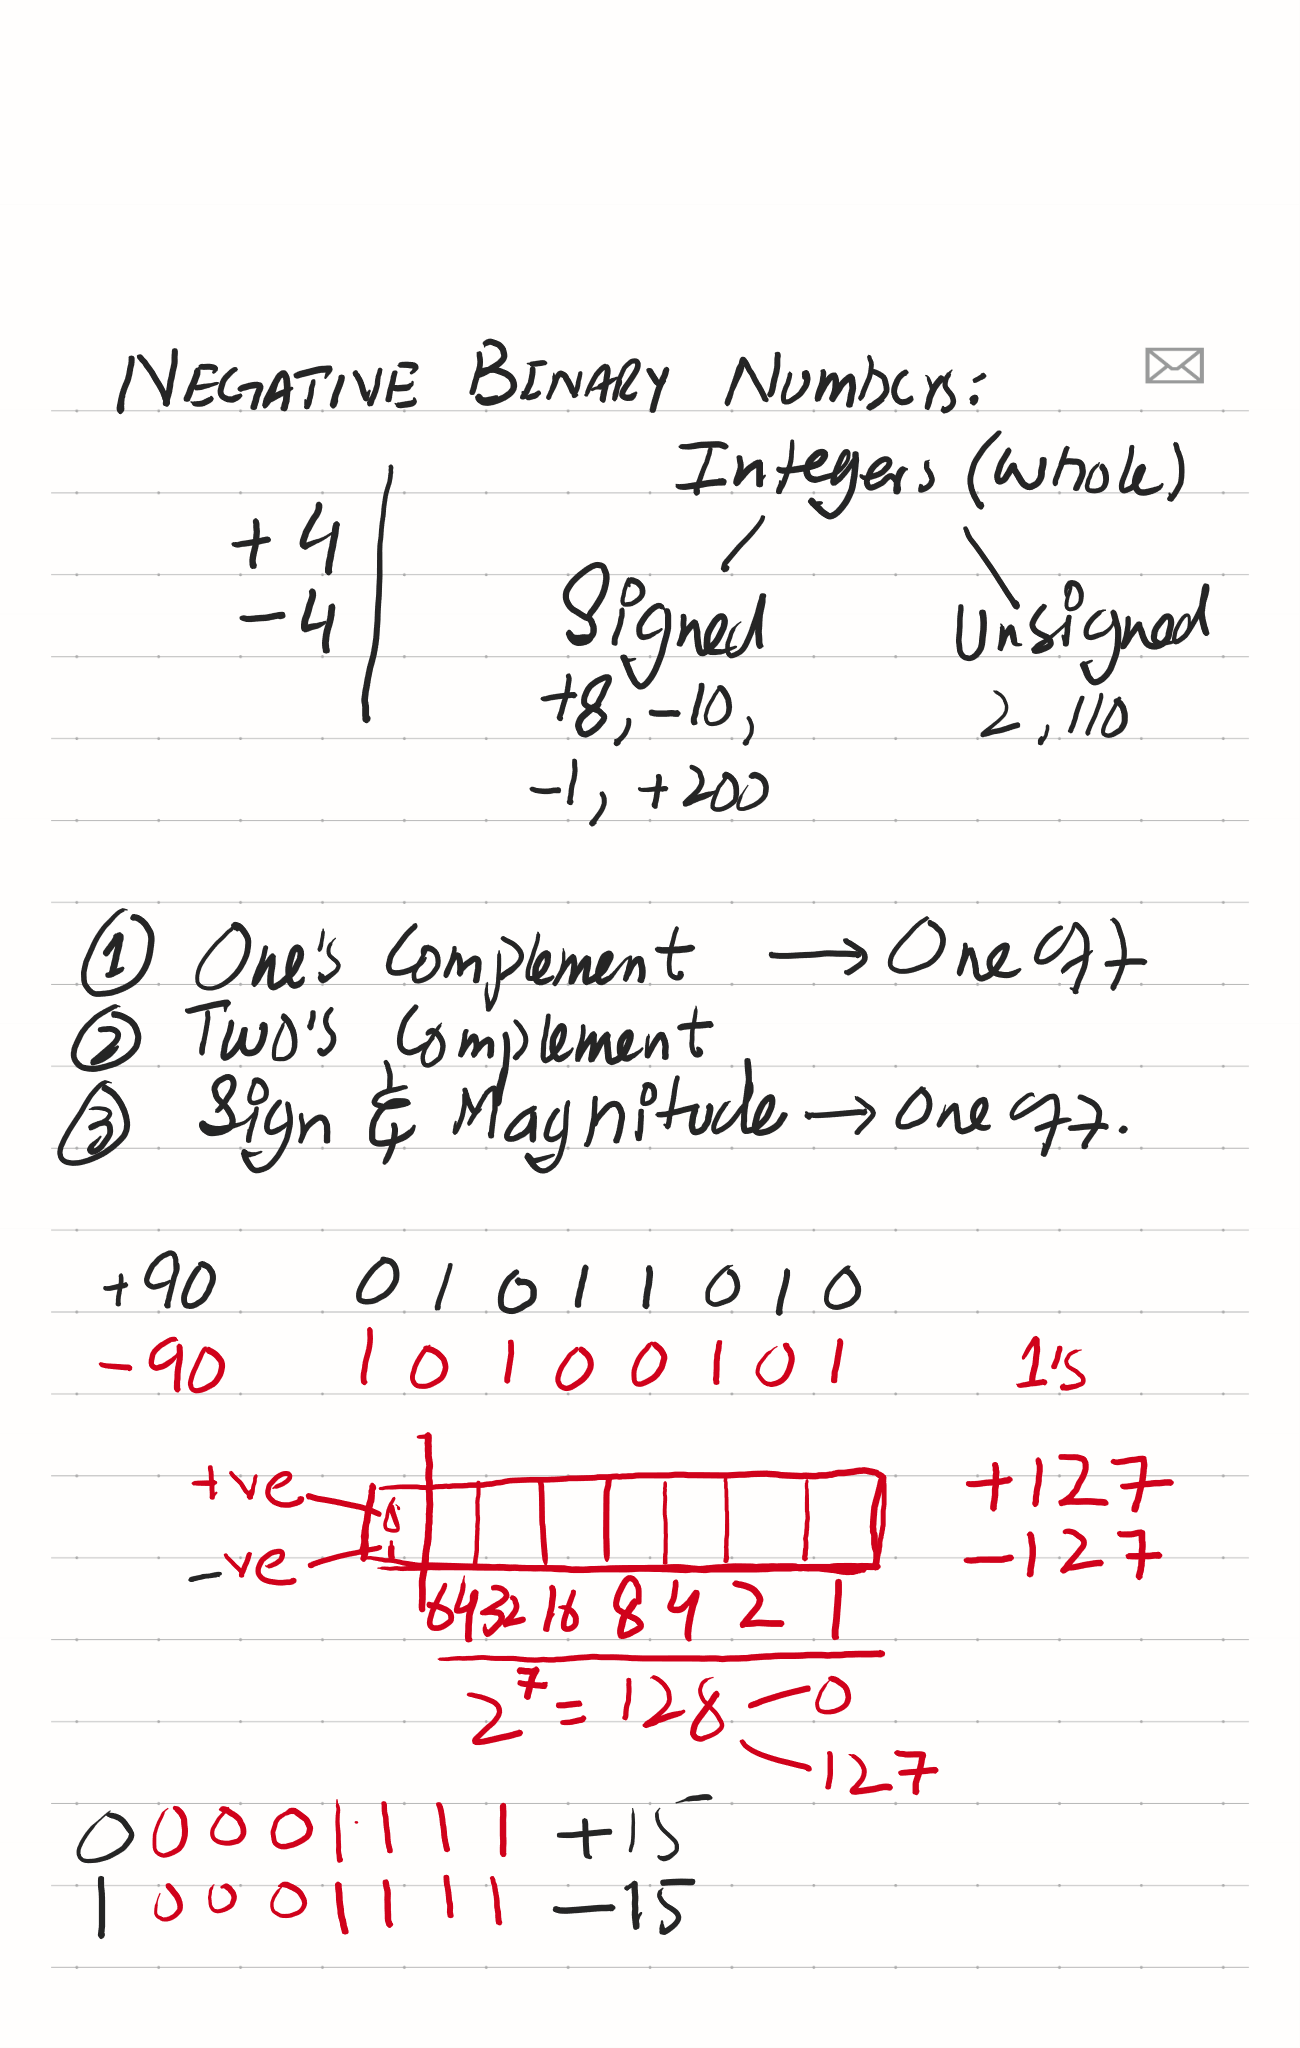 NEGATIVE BINARY NUMBERS:
Integers (whole)
+4
-4
Signed Unsigned
+8, -10, 2, 110
-1, +200
① One's Complement → One
② Two's Complement
③ Sign & Magnitude → One
+90 0 1 0 1 1 0 1 0
-90 1 0 1 0 0 1 0 1 1's
+ve 0 +127
-ve 1 -127
64 32 16 8 4 2 1
2⁷ = 128 0
127
0 0 0 0 1 1 1 1 +15
1 0 0 0 1 1 1 1 -15